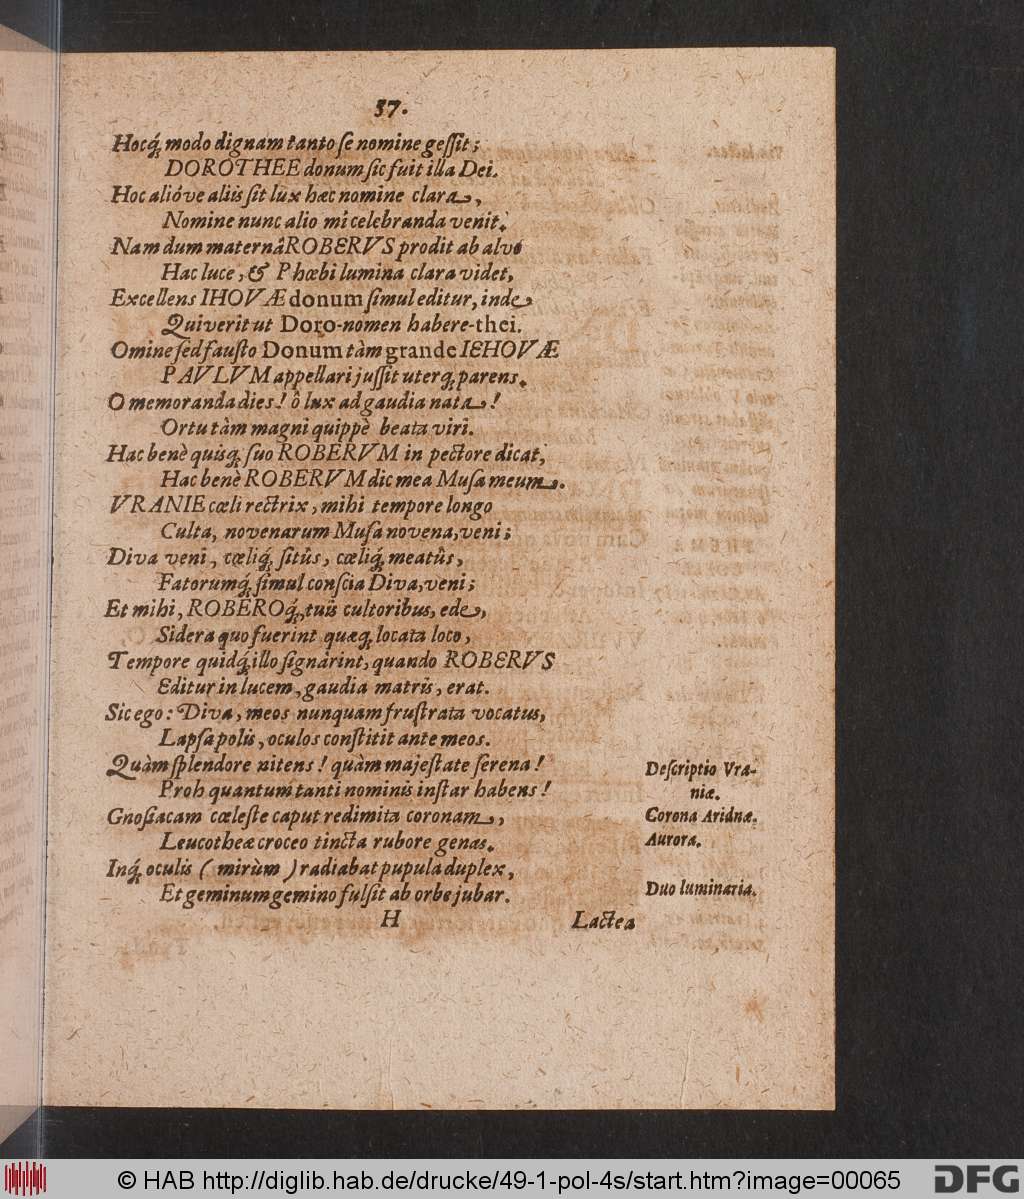 57.
Hocq́; modo dignam tanto se nomine gessit;
DOROTHEE donum sic fuit illa Dei.
Hoc alióve aliis sit lux hæc nomine clara,
Nomine nunc alio mî celebranda venit.
Nam dum maternâ ROBERVS prodit ab alvo
Hac luce, & Phœbi lumina clara videt,
Excellens IHOVÆ donum simul editur, inde
Quiverit ut Doro-nomen habere-thei.
Omine sed fausto Donum tàm grande IEHOVÆ
PAVLVM appellari jussit uterq; parens.
O memoranda dies! ô lux ad gaudia nata!
Ortu tàm magni quippè beata viri.
Hac benè quisq; suo ROBERVM in pectore dicat,
Hac benè ROBERVM dic mea Musa meum.
VRANIE cœli rectrix, mihi tempore longo
Culta, novenarum Musa novena, veni;
Diva veni, cœliq́; sitûs, cœliq́; meatûs,
Fatorumq́; simul conscia Diva, veni;
Et mihi, ROBEROq́;, tuis cultoribus, ede,
Sidera quo fuerint quæq; locata loco,
Tempore quidq́; illo signârint, quando ROBERVS
Editur in lucem, gaudia matris, erat.
Sic ego: Diva, meos nunquam frustrata vocatus,
Lapsa polis, oculos constitit ante meos.
Quàm splendore nitens! quàm majestate serena!
Proh quantum tanti nominis instar habens!
Gnosiacam cœleste caput redimita coronam,
Leucotheæ croceo tincta rubore genas.
Inq́; oculis (mirùm) radiabat pupula duplex,
Et geminum gemino fulsit ab orbe jubar.
Descriptio Vra-
niæ.
Corona Aridnæ.
Aurora.
Duo luminaria.
H
Lactea
© HAB http://diglib.hab.de/drucke/49-1-pol-4s/start.htm?image=00065
DFG